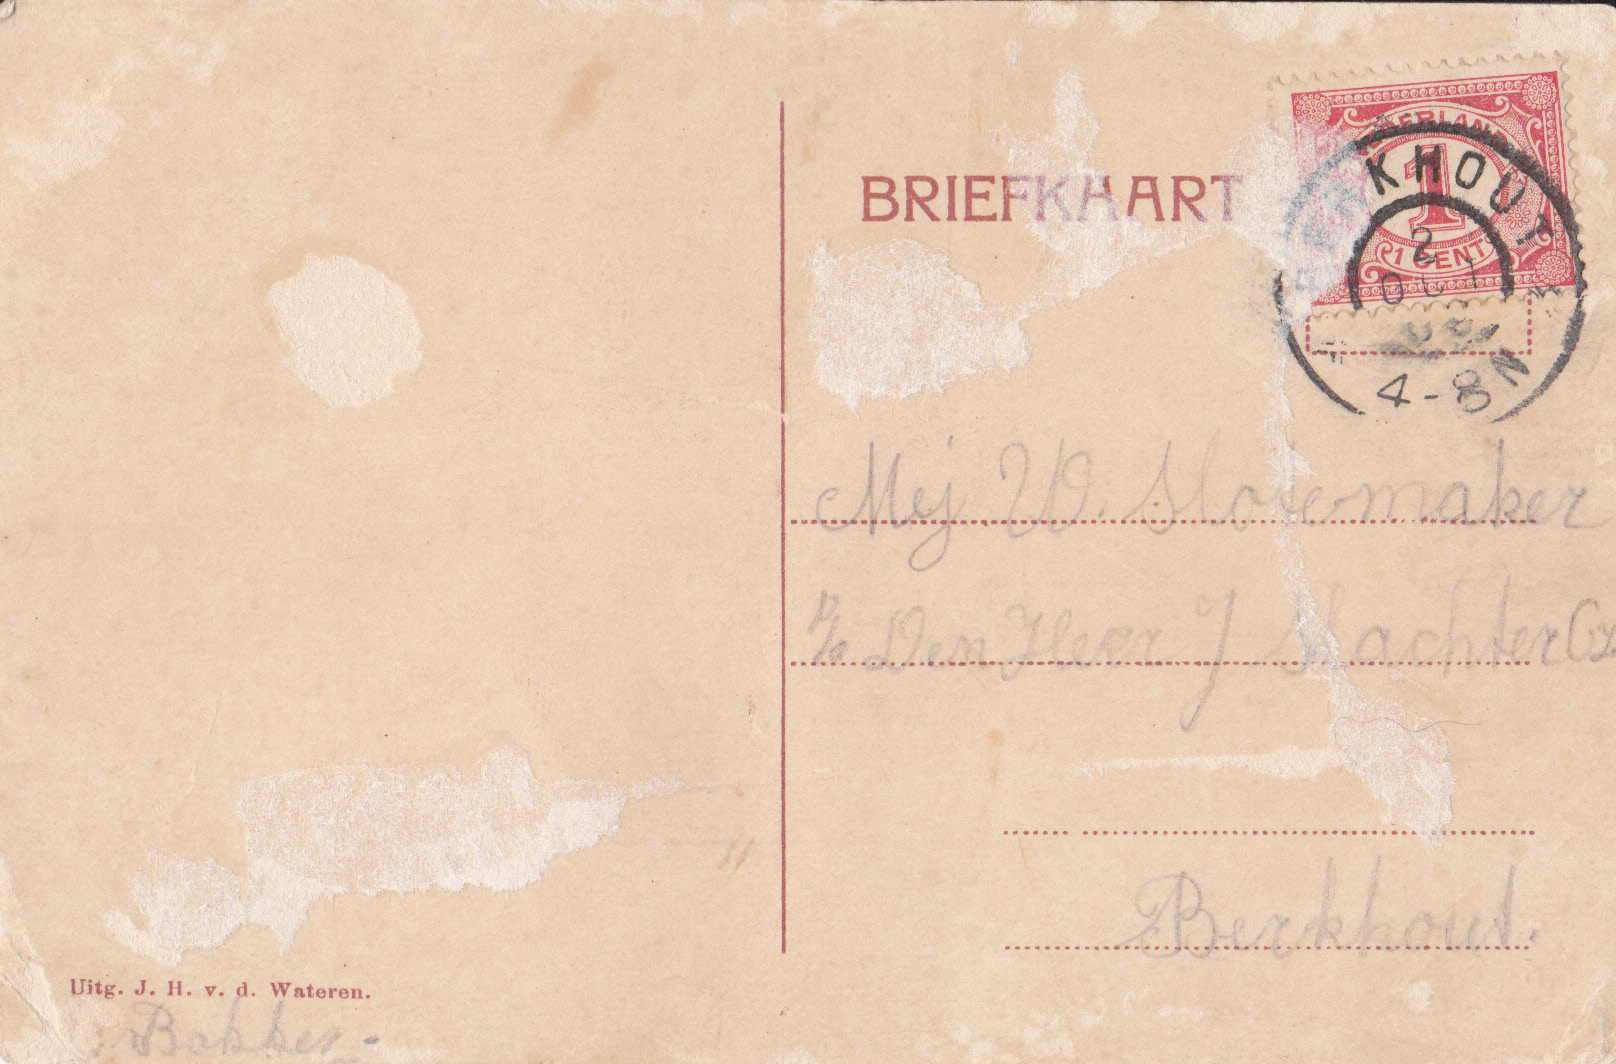 BRIEFKAART
NEDERLAND
1
1 CENT
BERKHOUT
2
OCT
4-8N
Mej W. Slotemaker
p/a Den Heer J Slachter Cz
Berkhout.
Uitg. J. H. v. d. Wateren.
Bakker